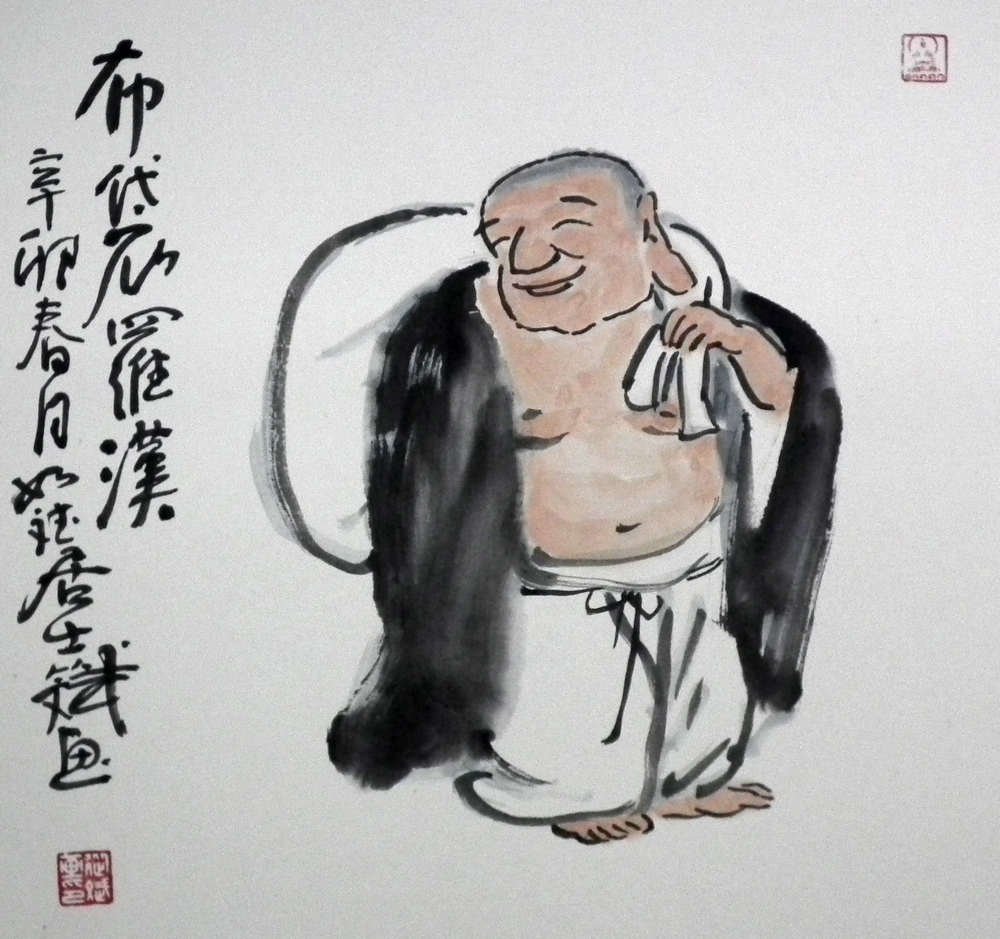 布袋羅漢
辛卯春月如居士画